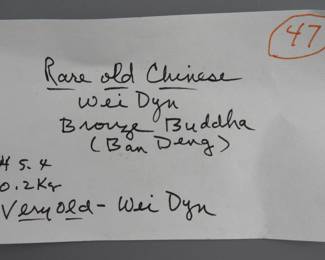 47
Rare old Chinese
Wei Dyn
Bronze Buddha
(Ban Deng)
H 5.4
0.2 Kg
Very old - Wei Dyn